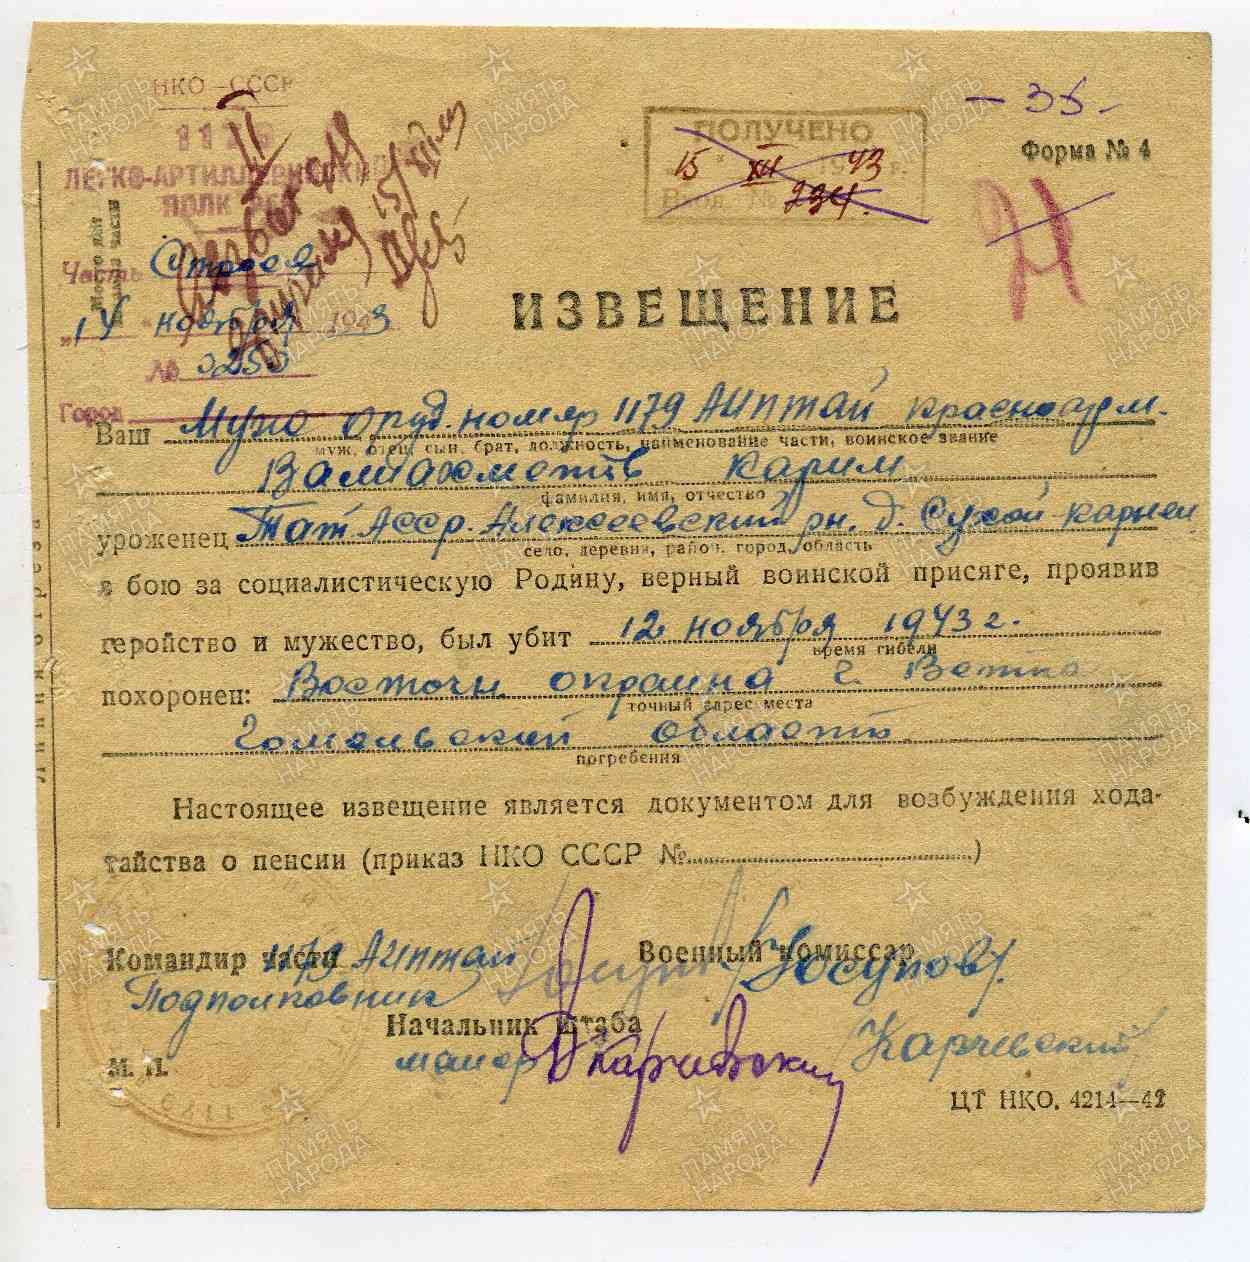 НКО - СССР
ЛЕГКО-АРТИЛЛЕРИЙСКИЙ
ПОЛК
Часть Строев
"14" ноября 1943
№ 0250
Город
- 35 -
Форма № 4
ПОЛУЧЕНО
15 XII 1943 г.
Вход. № 234.
15/XII
ИЗВЕЩЕНИЕ
Ваш Муж оруд. номер 1179 АИПТАП красноарм.
муж, отец, сын, брат, должность, наименование части, воинское звание
Валиахметов Карим
фамилия, имя, отчество
уроженец Тат. АССР. Алексеевский рн. д. Сухой-Карней
село, деревня, район, город, область
в бою за социалистическую Родину, верный воинской присяге, проявив
геройство и мужество, был убит 12 ноября 1943 г.
время гибели
похоронен: Восточн. окраина г. Ветка
точный адрес места
Гомельской области
погребения
Настоящее извещение является документом для возбуждения хода-
тайства о пенсии (приказ НКО СССР №)
Командир части 1179 АИПТАП
Подполковник
Военный комиссар
/Юсупов/
Начальник штаба
майор Карчевский
М. П.
1179
ЦТ НКО. 4214—42
линия отреза
ПАМЯТЬ НАРОДА